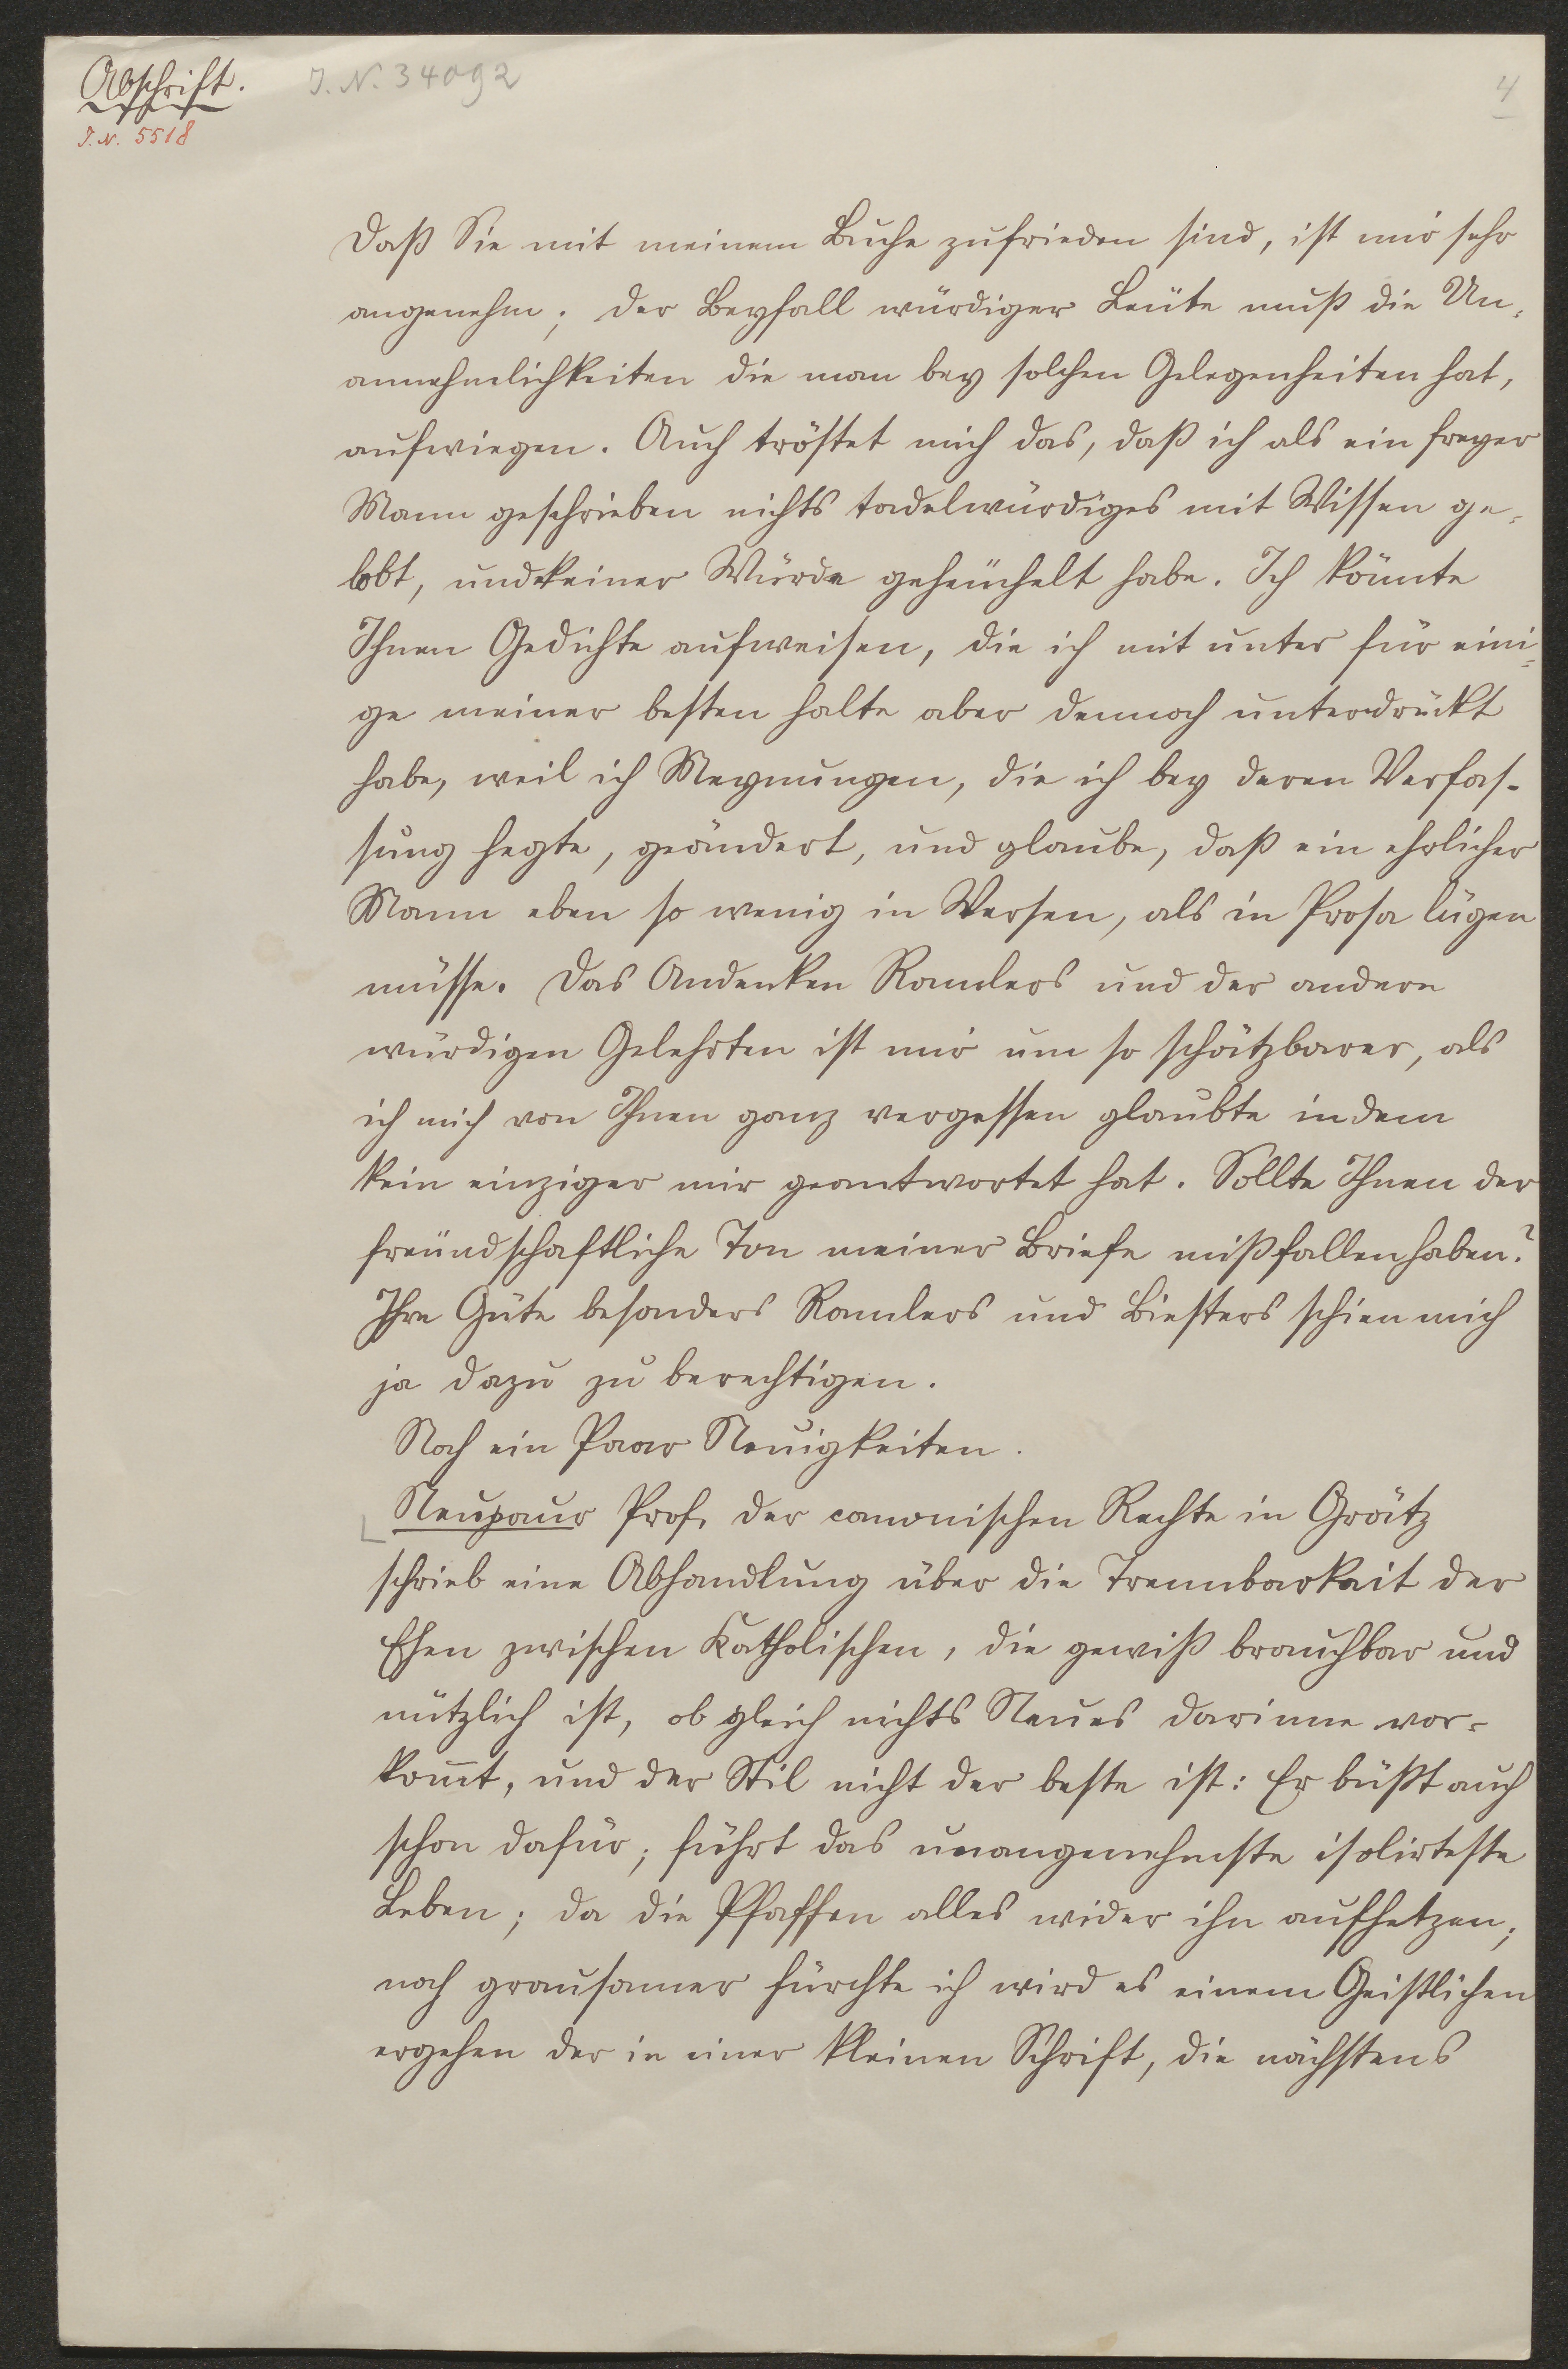 Abschrift.
I. N. 34092
4
I. N. 5518
Daß Sie mit meinem Buche zufrieden sind, ist mir sehr
angenehm; der Beyfall würdiger Leüte muß die Un-
annehmlichkeiten die man bey solchen Gelegenheiten hat,
aufwiegen. Auch tröstet mich das, daß ich als ein freyer
Mann geschrieben nichts tadelwürdiges mit Wissen ge-
lobt, und keiner Würde geheüchelt habe. Ich könnte
Ihnen Gedichte aufweisen, die ich mit unter für eini-
ge meiner besten halte aber dennoch unterdrückt
habe, weil ich Meynungen, die ich bey deren Verfas-
sung hegte, geändert, und glaube, daß ein ehrlicher
Mann eben so wenig in Versen, als in Prosa lügen
müsse. Das Andenken Ramlers und der andern
würdigen Gelehrten ist mir um so schätzbarer, als
ich mich von Ihnen ganz vergessen glaubte indem
kein einziger mir geantwortet hat. Sollte Ihnen der
freündschaftliche Ton meiner Briefe mißfallen haben?
Ihre Güte besonders Ramlers und Biesters schien mich
ja dazu zu berechtigen.
Noch ein Paar Neuigkeiten.
Neupaur Prof. der canonischen Rechte in Grätz
schrieb eine Abhandlung über die Trennbarkeit der
Ehen zwischen Katholischen, die gewiß brauchbar und
nützlich ist, ob gleich nichts Neues darinne vor-
kom̄t, und der Stil nicht der beste ist: Er büßt auch
schon dafür; führt das unangenehmste isolirteste
Leben; da die Pfaffen alles wider ihn aufhetzen;
noch grausamer fürchte ich wird es einem Geistlichen
ergehen der in einer kleinen Schrift, die nächstens